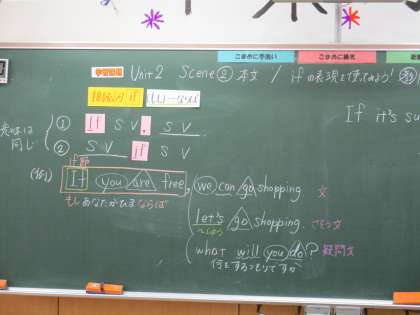 こまめに手洗い こまめに換気
学習課題 Unit 2 Scene② 本文 / ifの表現を使ってみよう!
接続詞 if (もし)~ならば
If it's su
意味は同じ
① If S V , S V
② S V if S V
if節
(例) If you are free, we can go shopping 文
もし あなたがひまならば
let's go shopping. さそう文
~しよう
what will you do? 疑問文
何をするつもりですか